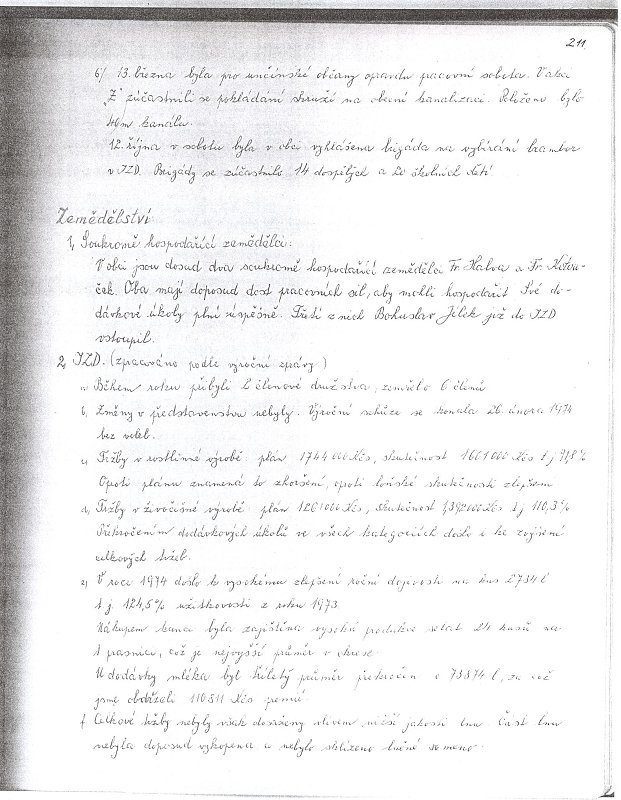 211
6/ 13. března byla pro unčínské občany opravdu pracovní sobota. V akci
„Z" zúčastnili se pokládání skruží na obecní kanalizaci. Položeno bylo
40m kanálu.
12. října v sobotu byla v obci vyhlášena brigáda na vybírání brambor
v JZD. Brigády se zúčastnilo 14 dospělých a 20 školních dětí.
Zemědělství
1, Soukromě hospodařící zemědělci:
V obci jsou dosud dva soukromě hospodařící zemědělci Fr. Halva a Fr.
ček. Oba mají doposud dost pracovních sil, aby mohli hospodařit. Své do-
dávkové úkoly plní úspěšně. Třetí z nich Bohuslav Jílek již do JZD
vstoupil.
2, JZD. (zpracováno podle výroční zprávy)
a, Během roku přibyli 2 členové družstva, zemřelo 6 členů
b, Změny v představenstvu nebyly. Výroční schůze se konala 26. února 1974
bez voleb.
c, Tržby v rostlinné výrobě: plán 1744 000 Kčs, skutečnost 1601 000 Kčs t.j. 91,8%
Oproti plánu znamená to zhoršení, oproti loňské skutečnosti zlepšení
d, Tržby v živočišné výrobě plán 1261000 Kčs, skutečnost 1392000 Kčs t.j 110,3%
Překročením dodávkových úkolů ve všech kategoriích došlo i ke zvýšení
celkových tržeb.
e, V roce 1974 došlo k vysokému zlepšení roční dojivosti na kus 2734 l
t.j. 124,5% užitkovosti z roku 1973
Nákupem kanců byla zajištěna vysoká produkce selat 24 kusů na
1 prasnici, což je nejvyšší průměr v okrese
U dodávky mléka byl tříletý průměr překročen o 73874 l, za což
jsme obdrželi 110.811 Kčs prémií
f, Celkové tržby nebyly však dosaženy vlivem nižší jakosti lnu. Část lnu
nebyla doposud vykoupena a nebylo sklizeno lněné semeno.